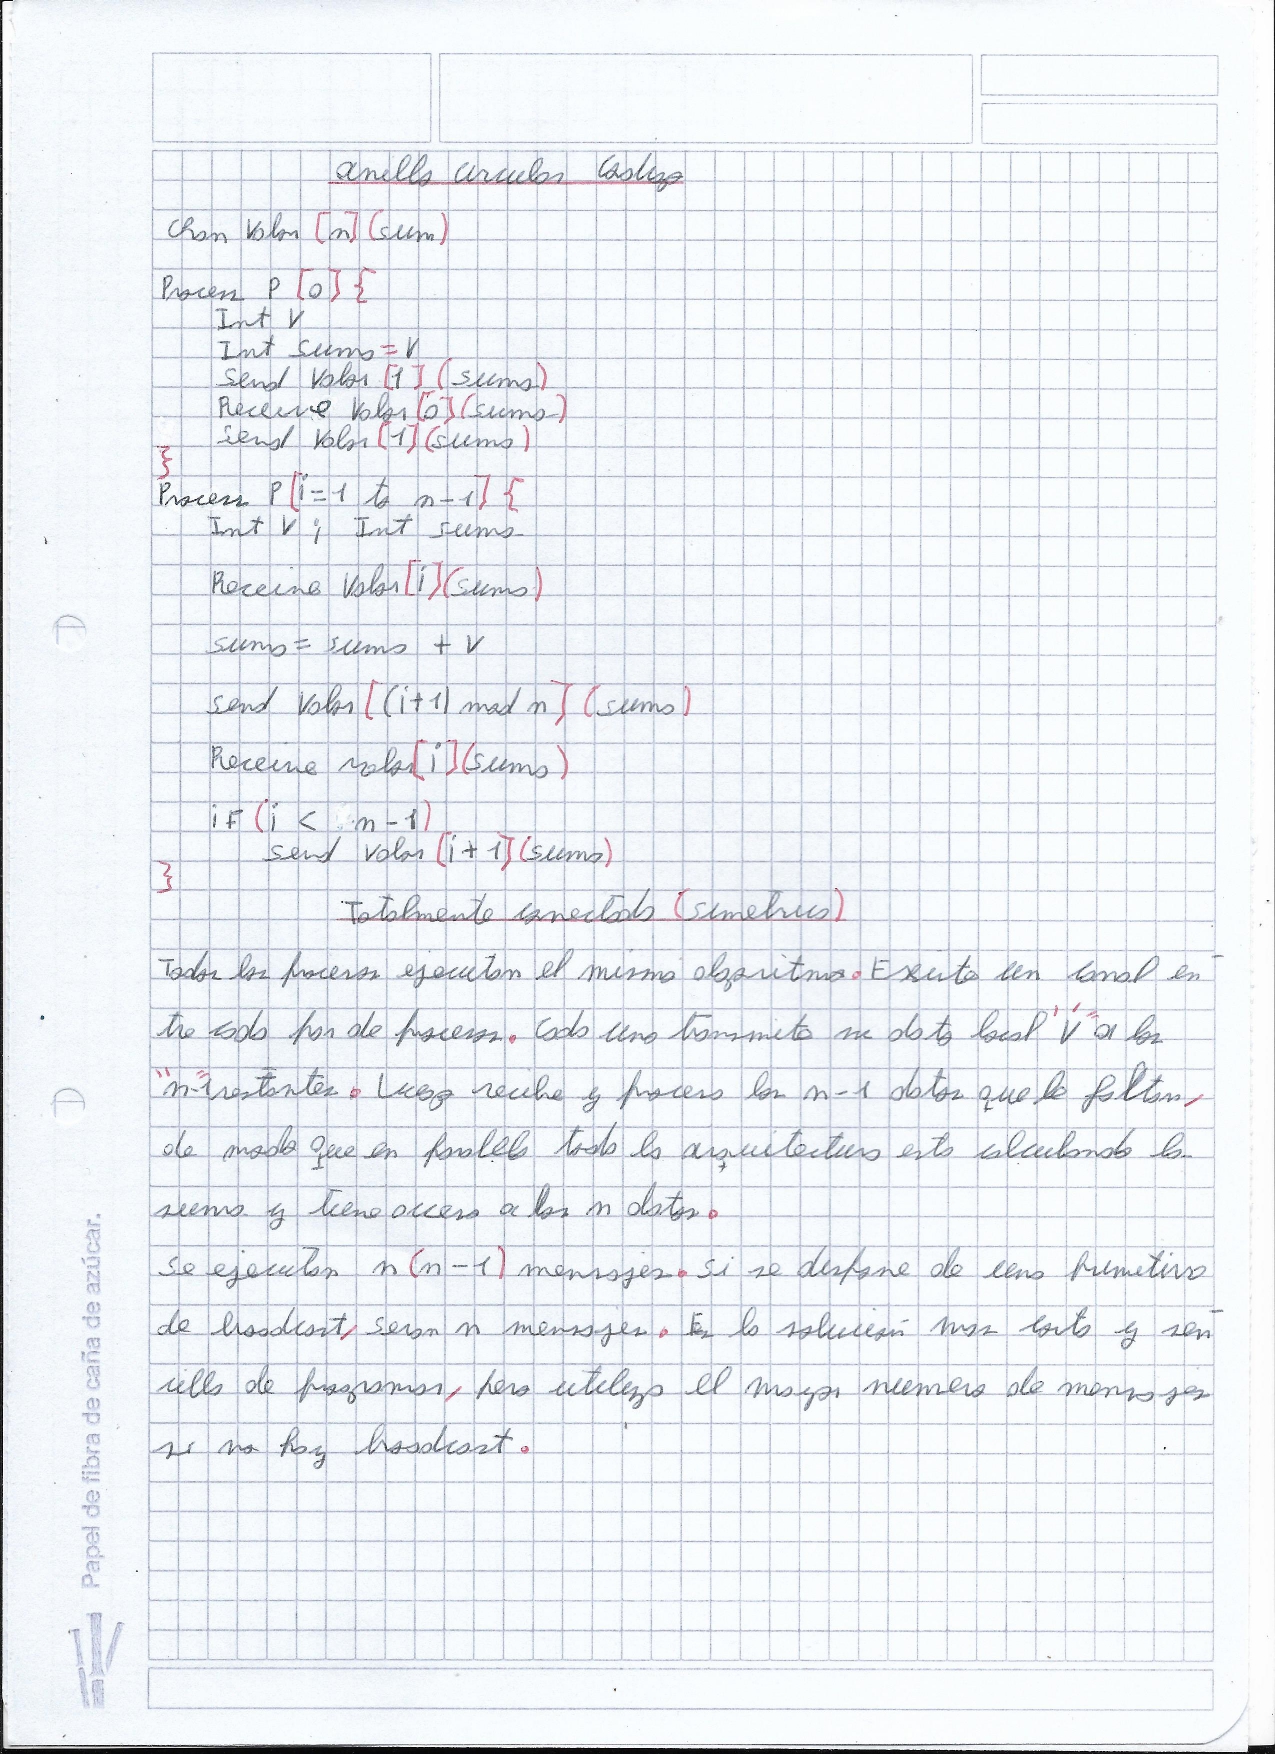 anillo circular codigo
Chan Valor [n] (sum)
Process P [0] {
Int V
Int suma = V
Send Valor [1] (suma)
Receive Valor [0] (suma)
Send Valor [1] (suma)
}
Process P [i=1 to n-1] {
Int V ; Int suma
Receive Valor [i] (suma)
suma = suma + V
send Valor [(i+1) mod n] (suma)
Receive valor [i] (suma)
iF (i < n-1)
send Valor [i+1] (suma)
}
Totalmente conectado (simetrico)
Todos los procesos ejecutan el mismo algoritmo. Existe un canal en-
tre cada par de procesos. Cada uno transmite su dato local "V" a los
"n-1" restantes. Luego recibe y procesa los n-1 datos que le faltan,
de modo que en paralelo toda la arquitectura esta calculando la
suma y tiene acceso a los n datos.
Se ejecutan n(n-1) mensajes. Si se dispone de una primitiva
de broadcast, seran n mensajes. Es la solución mas corta y sen-
cilla de programar, pero utiliza el mayor numero de mensajes
si no hay broadcast.
Papel de fibra de caña de azúcar.